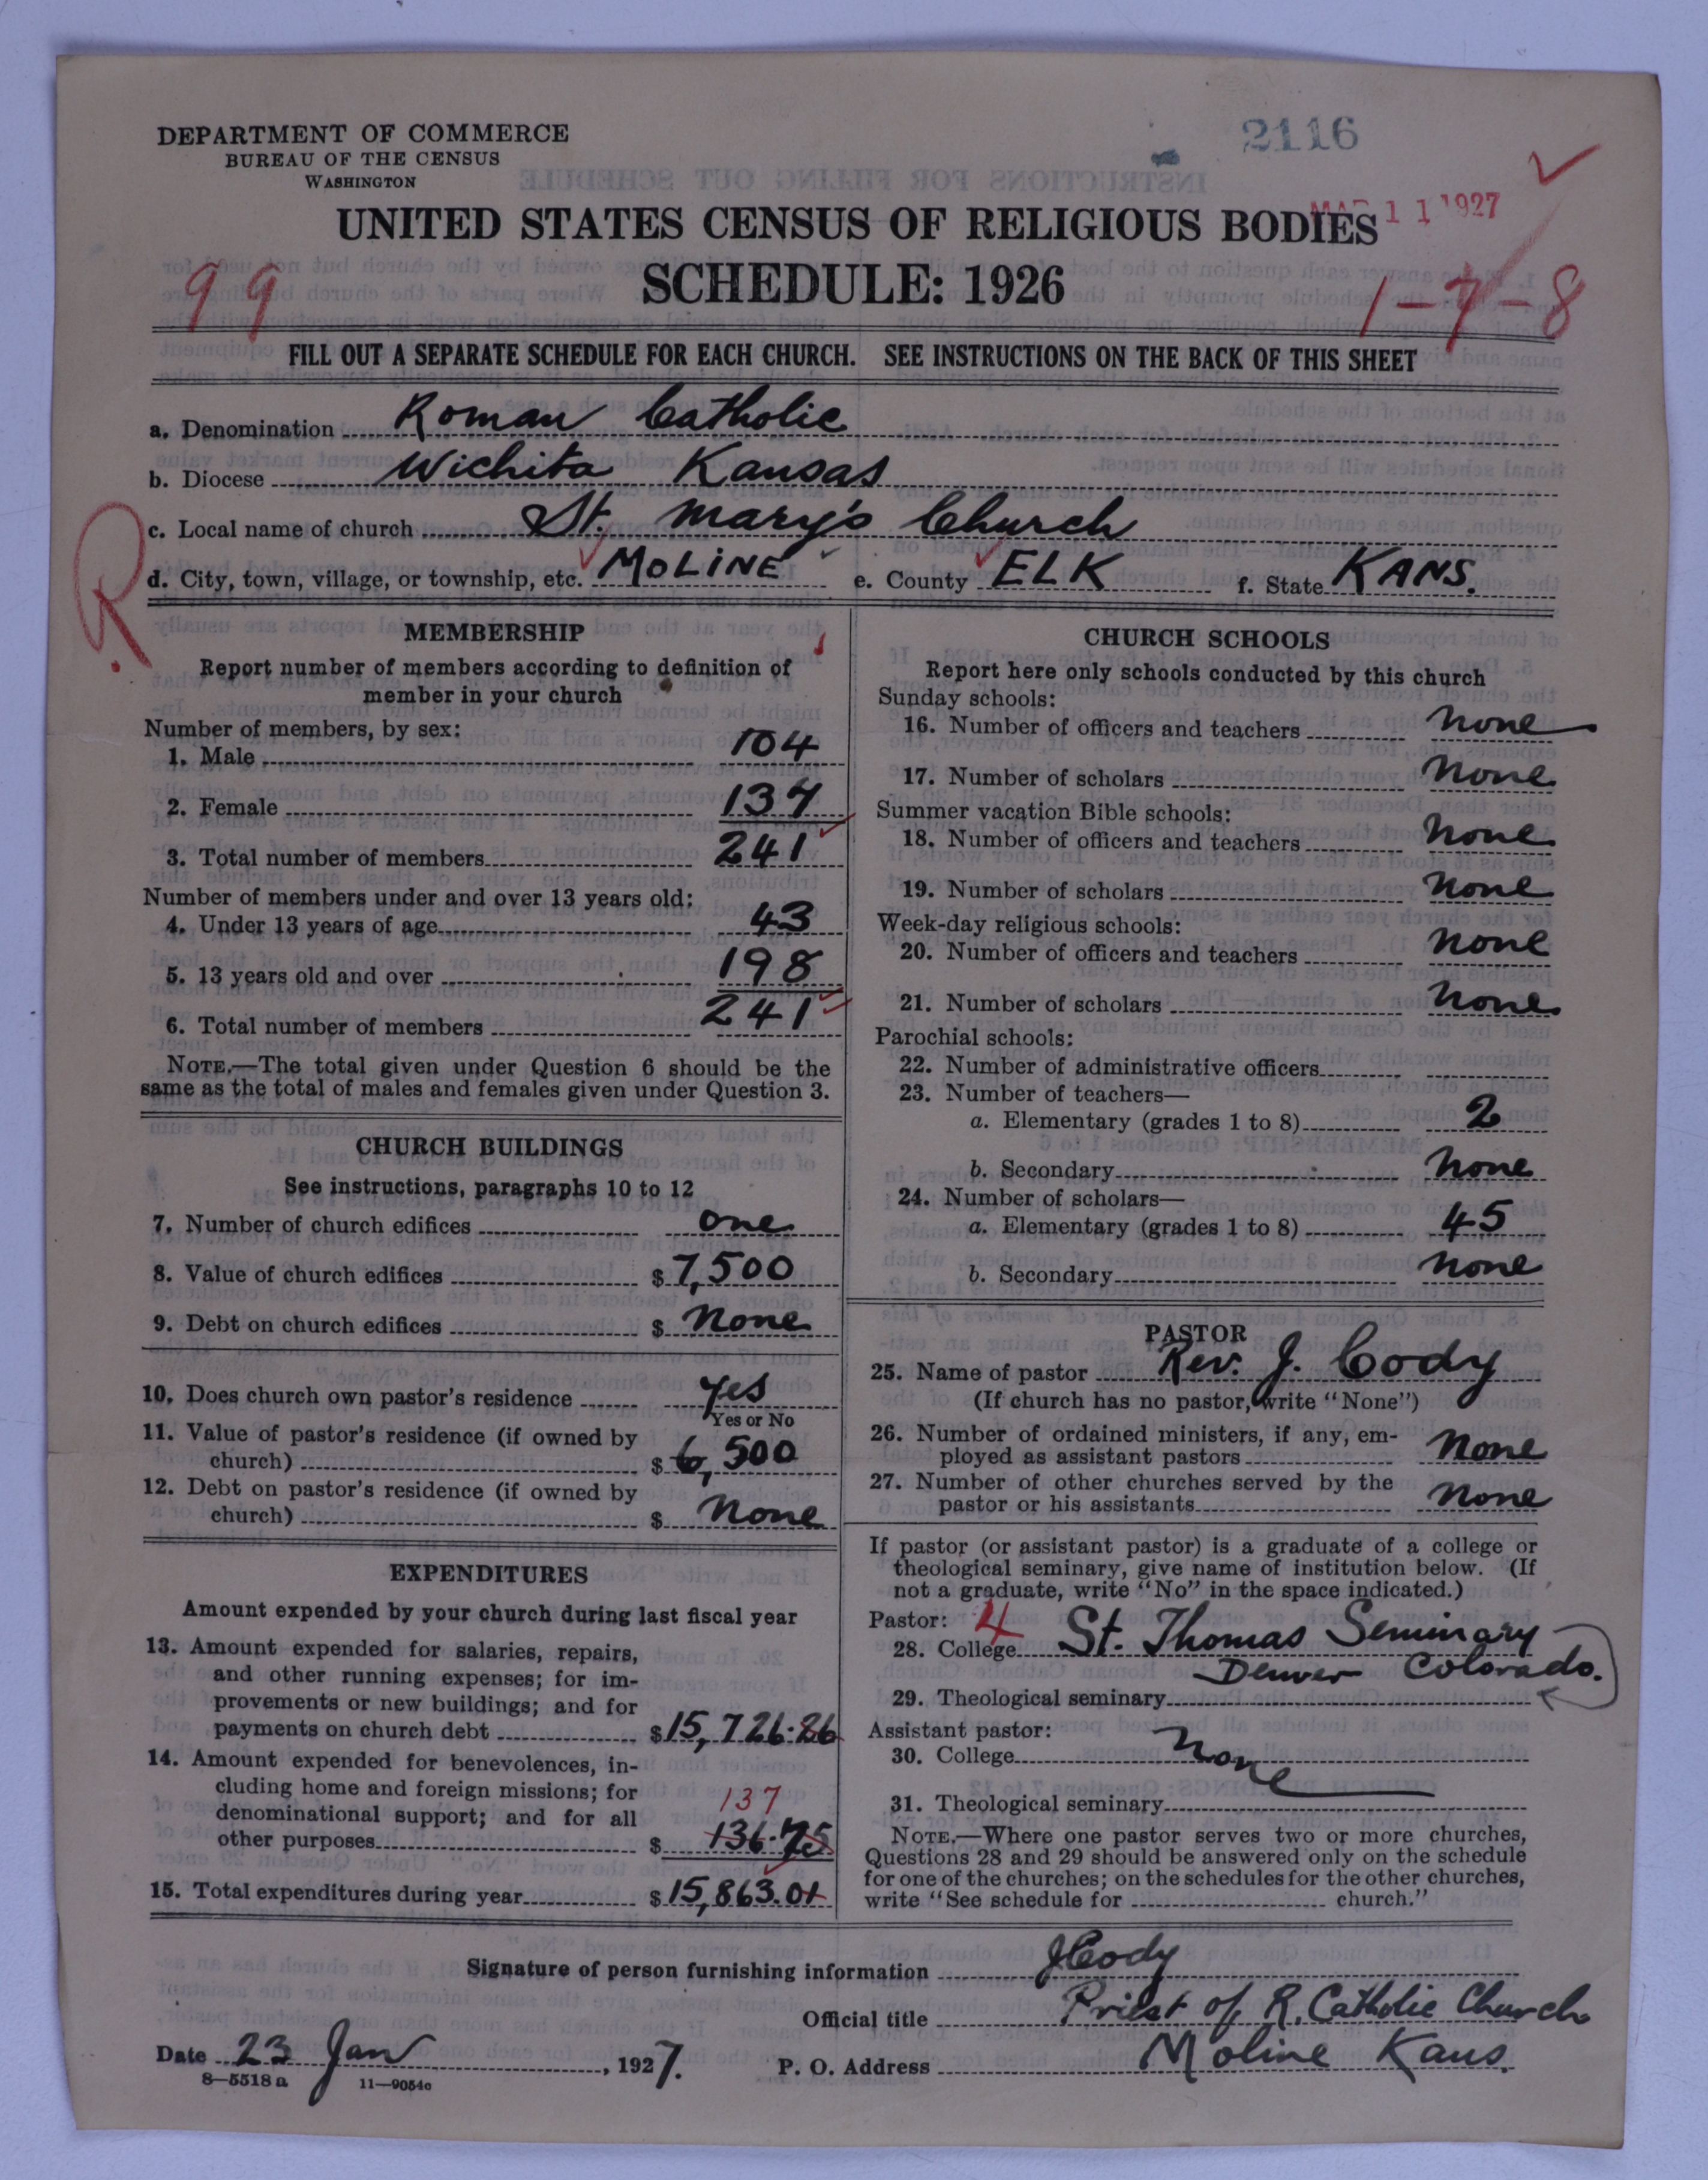 DEPARTMENT OF COMMERCE
BUREAU OF THE CENSUS
WASHINGTON
2116
MAR 11 1927
UNITED STATES CENSUS OF RELIGIOUS BODIES
SCHEDULE: 1926
99
1-7-8
FILL OUT A SEPARATE SCHEDULE FOR EACH CHURCH. SEE INSTRUCTIONS ON THE BACK OF THIS SHEET
a. Denomination Roman Catholic
b. Diocese Wichita Kansas
c. Local name of church St. Mary's Church
R
d. City, town, village, or township, etc. MOLINE e. County ELK f. State KANS.
MEMBERSHIP
Report number of members according to definition of
member in your church
Number of members, by sex:
1. Male 104
2. Female 137
3. Total number of members 241
Number of members under and over 13 years old:
4. Under 13 years of age 43
5. 13 years old and over 198
6. Total number of members 241
NOTE.—The total given under Question 6 should be the
same as the total of males and females given under Question 3.
CHURCH BUILDINGS
See instructions, paragraphs 10 to 12
7. Number of church edifices one
8. Value of church edifices $ 7,500
9. Debt on church edifices $ None
10. Does church own pastor's residence yes
Yes or No
11. Value of pastor's residence (if owned by
church) $ 6,500
12. Debt on pastor's residence (if owned by
church) $ None
EXPENDITURES
Amount expended by your church during last fiscal year
13. Amount expended for salaries, repairs,
and other running expenses; for im-
provements or new buildings; and for
payments on church debt $ 15,726.26
14. Amount expended for benevolences, in-
cluding home and foreign missions; for
denominational support; and for all
137
other purposes $ 136.75
15. Total expenditures during year $ 15,863.01
CHURCH SCHOOLS
Report here only schools conducted by this church
Sunday schools:
16. Number of officers and teachers None
17. Number of scholars None
Summer vacation Bible schools:
18. Number of officers and teachers None
19. Number of scholars None
Week-day religious schools:
20. Number of officers and teachers None
21. Number of scholars None
Parochial schools:
22. Number of administrative officers
23. Number of teachers—
a. Elementary (grades 1 to 8) 2
b. Secondary None
24. Number of scholars—
a. Elementary (grades 1 to 8) 45
b. Secondary None
PASTOR
25. Name of pastor Rev. J. Cody
(If church has no pastor, write "None")
26. Number of ordained ministers, if any, em-
ployed as assistant pastors None
27. Number of other churches served by the
pastor or his assistants None
If pastor (or assistant pastor) is a graduate of a college or
theological seminary, give name of institution below. (If
not a graduate, write "No" in the space indicated.)
Pastor: 4
28. College St. Thomas Seminary
Denver Colorado.
29. Theological seminary
Assistant pastor:
30. College None
31. Theological seminary
NOTE.—Where one pastor serves two or more churches,
Questions 28 and 29 should be answered only on the schedule
for one of the churches; on the schedules for the other churches,
write "See schedule for church."
Signature of person furnishing information J Cody
Official title Priest of R. Catholic Church
Date 23 Jan, 1927. P. O. Address Moline Kans.
8—5518 a 11—9054c